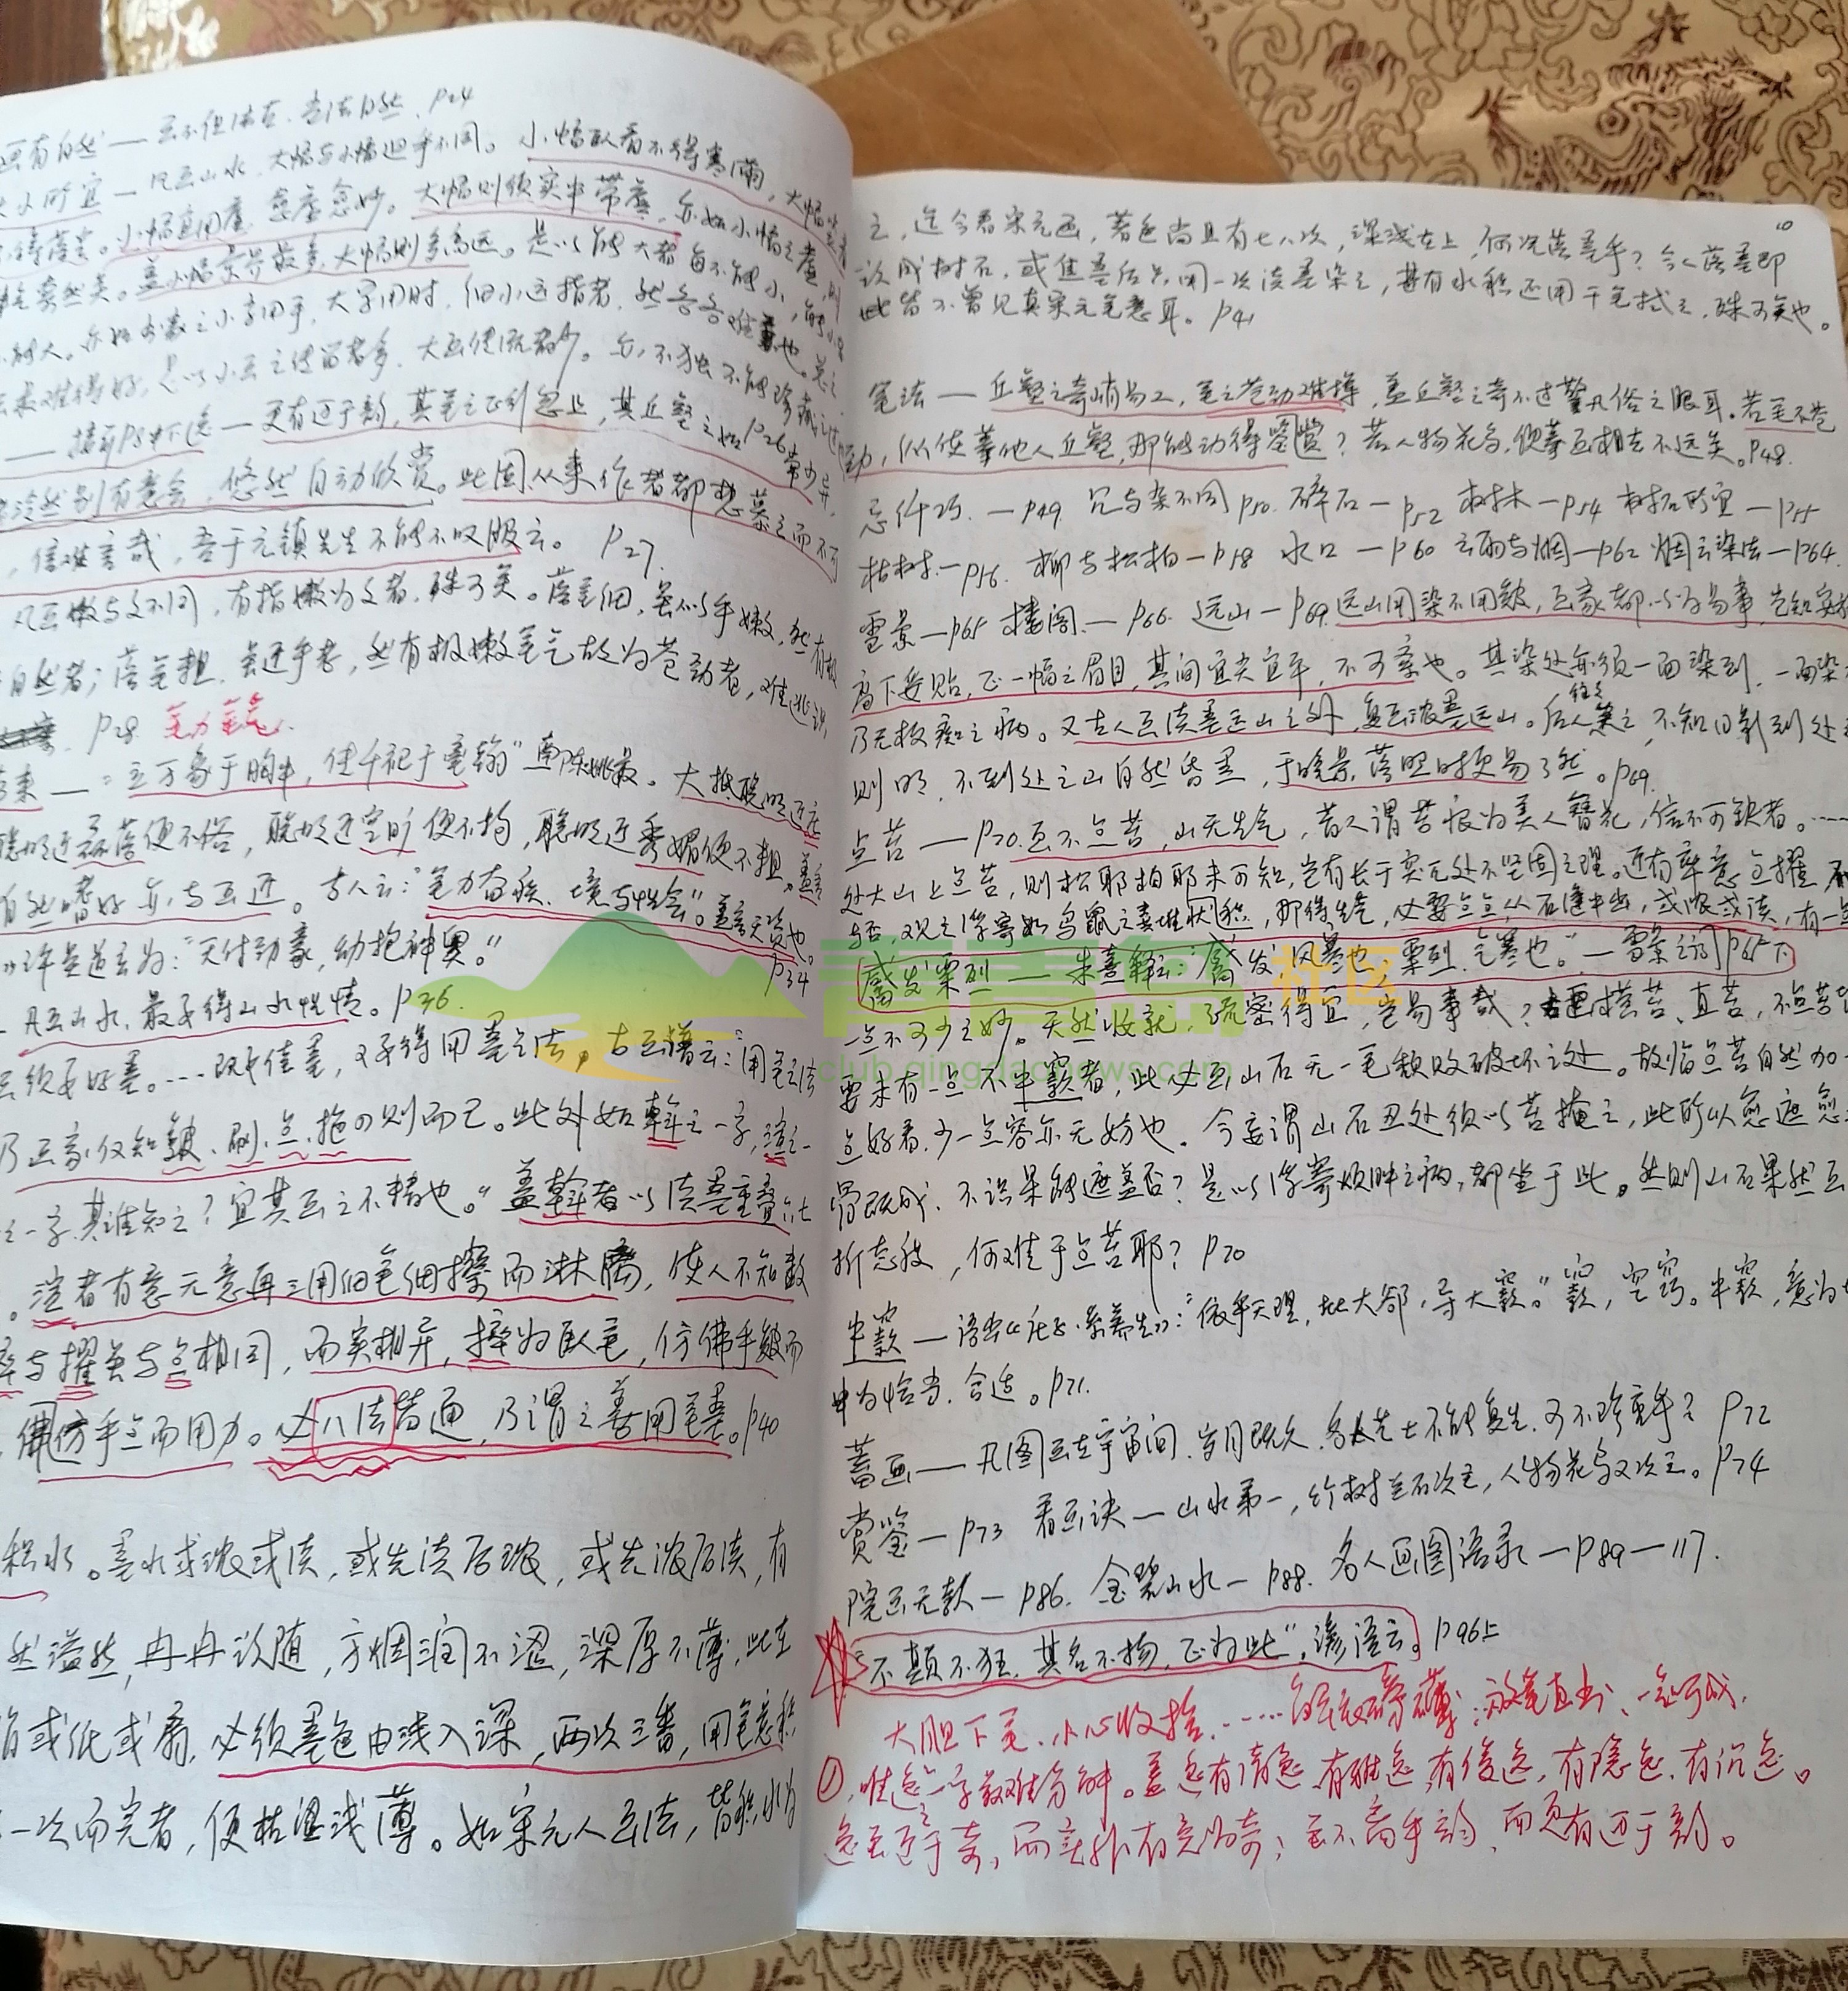 画有自然——画不但法古、当法自然. P24
大小所宜—凡画山水, 大幅与小幅迥乎不同。小幅卧看不得塞满, 大幅竖看
不得落空。小幅宜用虚, 愈虚愈妙。大幅则须实中带虚, 亦如小幅之虚, 则
神气索然矣。盖小幅景界最多, 大幅则多高远。是以能大者每不能小, 能小者
不能大。亦如书家之小字用手, 大字用肘, 细小运指者, 然各各难兼也。总之
是以小画之传留者多, 大画便流者少。亦不独不能珍藏之过
——接前P8中下逸—更有迈于韵, 其笔之正行忽止, 其丘壑之如常少异, P26
令冷然别有意会, 悠然自动欣赏。此固从来作者都想慕之而不可
, 信难言哉, 吾于元镇先生不能不叹服云。 P27
凡画嫩与文不同, 有指嫩为文者, 殊可笑。落笔细, 虽似乎嫩, 然有极
自然者; 落笔粗, 虽近乎老, 然有极嫩笔气故为苍劲者, 难逃识
P28 笔力笔气.
—“立万象于胸中, 传千祀于毫翰” 南陈姚最。大抵聪明近庄
聪明近磊落便不俗, 聪明近空旷便不拘, 聪明近秀媚便不粗。盖言
自然嗜好亦与画近。古人云:“笔力奋疾、境与性会”。盖言天资也。
P34
许是道玄为:“天付劲毫, 幼抱神奥。”
凡画山水, 最要得山水性情。P36
云须要好墨。……既有佳墨, 又要得用墨之法, 古画谱云:“用笔之法
乃画家仅知皴、刷、点、拖四则而已。此外如斡之一字, 渲之一
之一字, 其谁知之? 宜其画之不精也。“盖斡者以淡墨重叠六七
。渲者有意无意再三用细笔细擦而淋漓, 使人不知数
捽与擢虽与点相同, 而实相异, 捽为卧笔, 仿佛乎皴而
, 仿佛乎点而用力。必八法皆通, 乃谓之善用笔墨。P40
积水。墨水或浓或淡, 或先淡后浓, 或先浓后淡, 有
然溢然, 冉冉欲随, 方烟润不涩, 深厚不薄, 此在
或低或高, 必须墨色由浅入深, 两次三番, 用笔意积
一次而完者, 便枯涩浅薄。如宋元人画法, 皆积水为
10
之, 迄今看宋元画, 著色尚且有七八次, 深浅在上, 何况落墨乎? 今人落墨即
欲成树石, 或焦墨后只用一次淡墨染之, 甚有水积还用干笔拭之, 殊可笑也。
此皆不曾见真宋元笔意耳。P41
笔法—丘壑之奇峭易工, 笔之苍劲难摹, 盖丘壑之奇不过警凡俗之眼耳。若笔不苍
劲, 纵使摹他人丘壑, 那能动得鉴赏? 若人物花鸟, 便摹画相去不远矣。P48.
忌纤巧.—P49 冗与杂不同P50. 碎石—P52 树木—P54 树石所宜—P55
枯树.—P56. 柳与松柏—P58 水口—P60 云雨与烟—P62 烟云染法—P64
雪景—P65 楼阁.—P66. 远山—P69. 远山用染不用皴, 画家都以为易事, 岂知安排
高下妥贴, 正一幅之眉目, 其间宜尖宜平, 不可率也。其染处亦须一面染到, 一面染
乃无板痴之病。又古人画淡墨远山之外, 复画浓墨远山。后人往往笑之, 不知日影到处
则明, 不到处之山自然昏黑, 于晚景落照时更易了然。P69.
点苔—P70. 画不点苔, 山无生气, 昔人谓苔痕为美人簪花, 信不可缺者。……
处大山上点苔, 则松耶柏耶未可知, 岂有长于突兀处不坚固之理。近有率意点擢 不
苔, 观之浮寄如鸟鼠之粪堆状积, 那得生气, 必要点点从石缝中出, 或浓或淡, 有一点
觱发栗列——朱熹解云:“觱发, 风寒也, 栗列, 气寒也。”—雪景之词P65下
一点不可少之妙。天然收就, 疏密得宜, 岂易事哉? 古画横苔、直苔, 不点苔者
要未有一点不中窾者, 此必画山石无一毫颓败破坏之处。故临点苔自然加一
点好看, 少一点容亦无妨也. 今妄谓山石丑处须以苔掩之, 此所以愈遮愈
骨既成, 不识果能遮盖否? 是以浮寄烦肿之病, 都坐于此。然则山石果然画
折态极, 何难于点苔耶? P70
中窾—语出《庄子·养生》:“依乎天理, 批大郤, 导大窾。” 窾, 空窍。中窾, 意为切
中为恰当, 合适。P71.
蓄画—凡图画在宇宙间, 岁月既久, 名人艺士不能复生, 可不珍重乎? P72
赏鉴—P73 看画诀—山水第一, 竹树兰石次之, 人物花鸟又次之。P74
院画无款—P86. 金碧山水—P88. 名人画图语录—P89—117.
“不颠不狂, 其名不扬, 正为此”. 谚语云。P96上
大胆下笔、小心收拾. ……解衣磅礴; 放笔直书、一气呵成.
①, 唯逸之一字最难分解。盖逸有清逸, 有雅逸, 有俊逸, 有隐逸, 有沉逸。
逸虽近于奇, 而实非有意为奇; 虽不离乎韵, 而更有迈于韵。
青青岛社区
club.qingdaonews.com